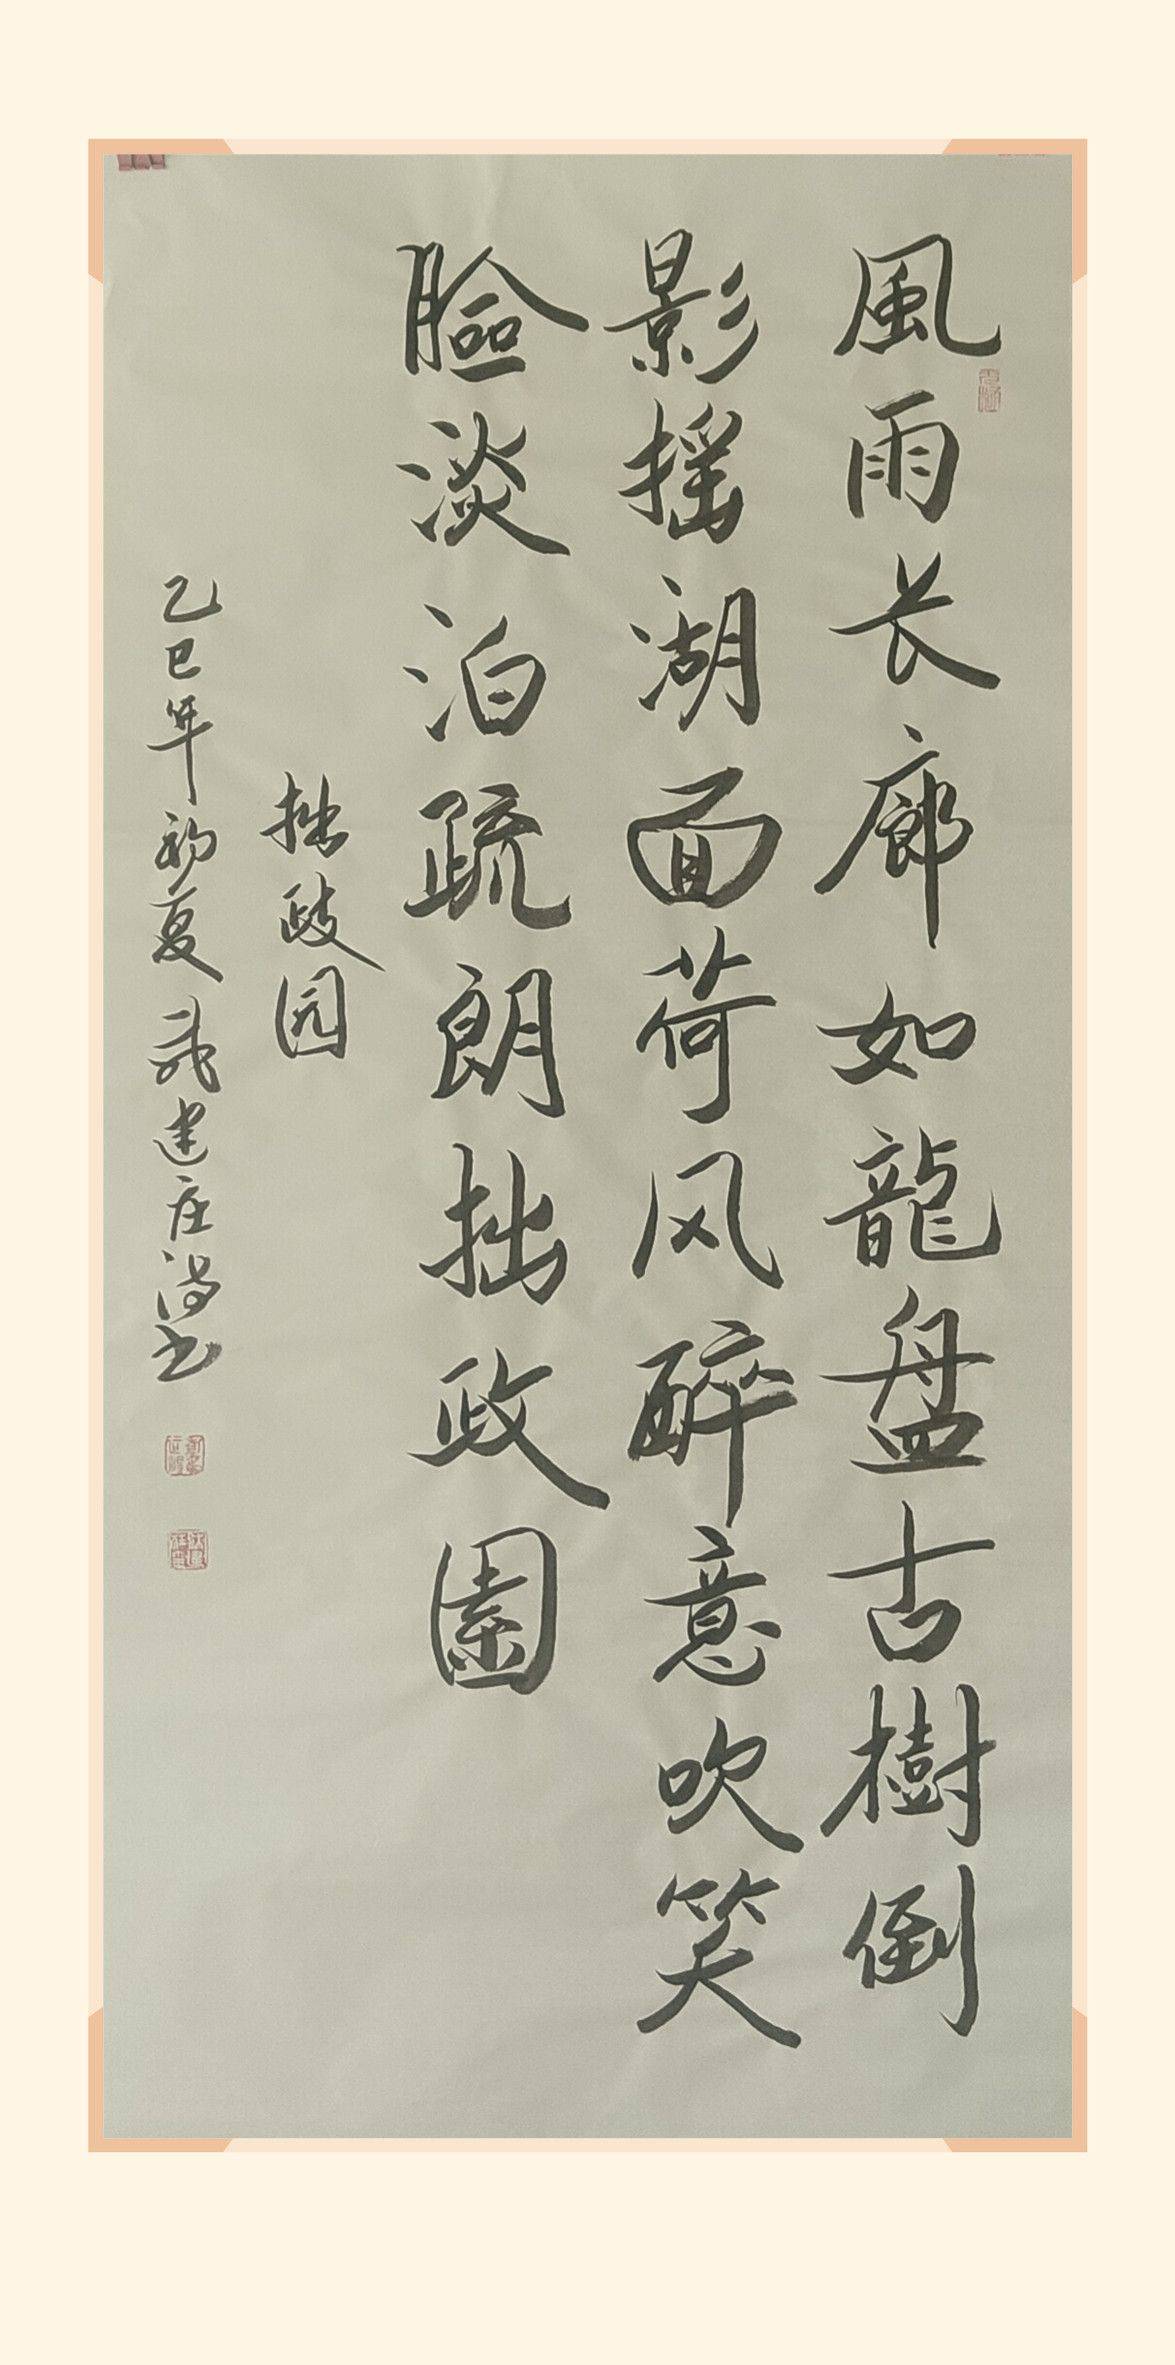 風雨长廊如龍盘古樹倒
影摇湖面荷风醉意吹笑
脸淡泊疏朗拙政園
拙政园
乙巳年初夏武建庄湯书